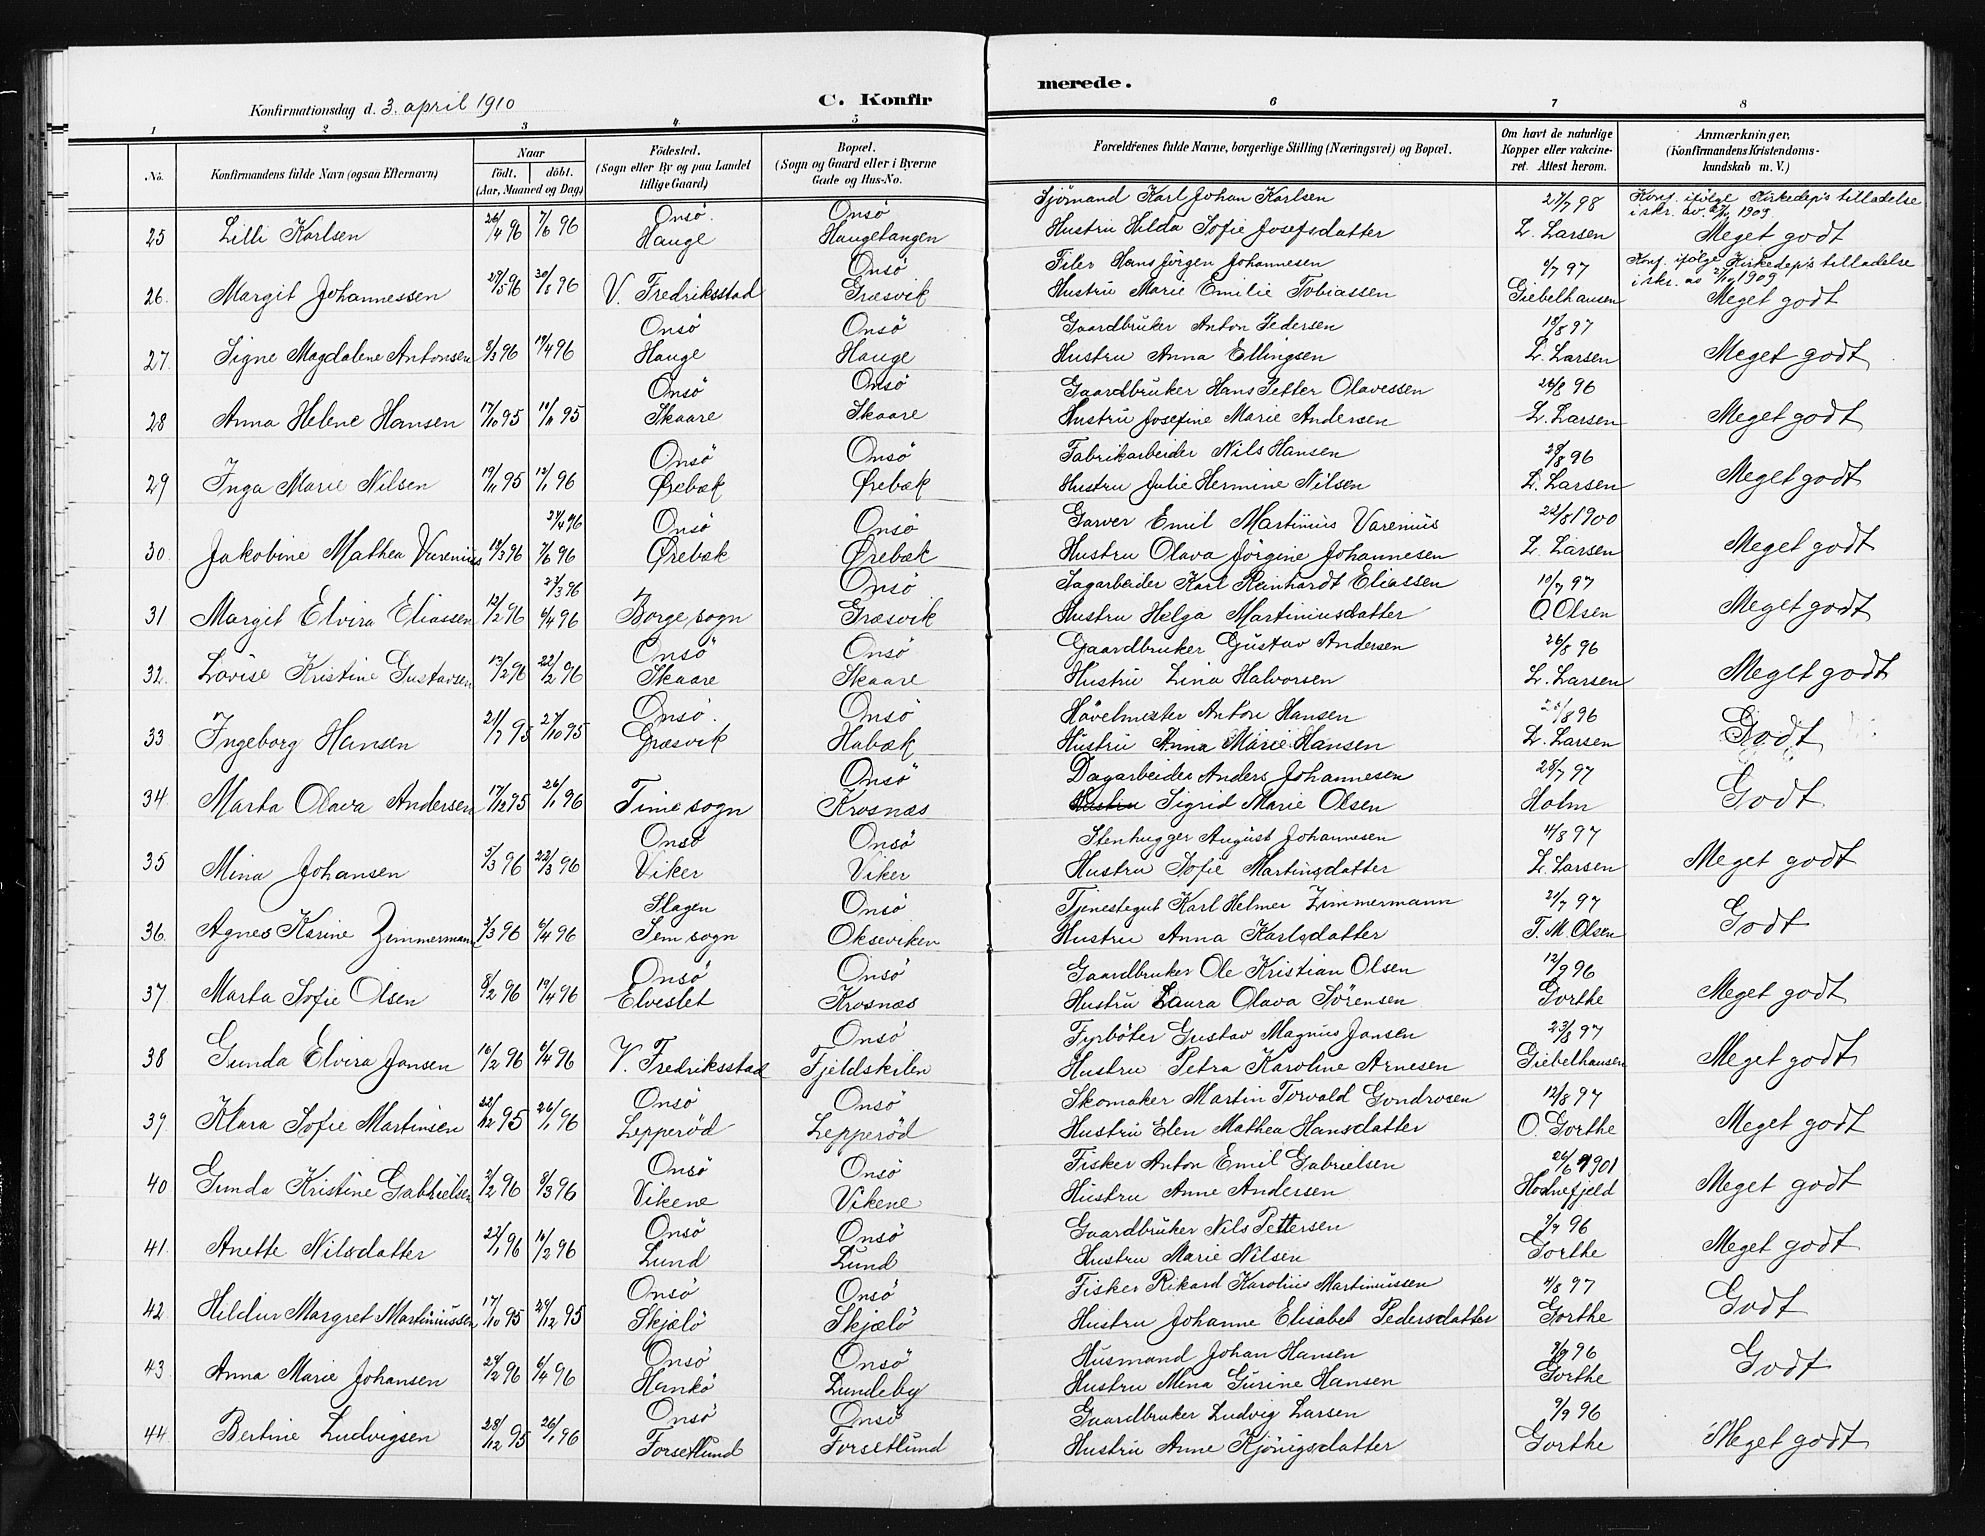 Konfirmationsdag d. 3. april 1910
C. Konfir
merede.
1 2 3 4 5 6 7 8
No.
Konfirmandens fulde Navn (ogsaa Efternavn)
Naar
født. døbt.
(Aar, Maaned og Dag)
Fødested.
(Sogn eller By og paa Landet
tillige Gaard)
Bopæl.
(Sogn og Gaard eller i Byerne
Gade og Hus-No.
Forældrenes fulde Navne, borgerlige Stilling (Næringsvei) og Bopæl.
Om havt de naturlige
Kopper eller vakcine-
ret. Attest herom.
Anmærkninger.
(Konfirmandens Kristendoms-
kundskab m. V.)
Onsö. Onsö Sjömand Karl Johan Karlsen 27/7 98 Konf. ifölge Kirkedep's tilladelse
i skr. av 1909
25 Lilli Karlsen 26/4 96 7/6 96 Hauge Haugetangen Hustru Hilda Sofie Josefsdatter L. Larsen Meget godt
Onsö Filer Hans Jörgen Johannesen 6/7 97 Konf. ifölge Kirkedep's tilladelse
i skr. av 1909
26. Margit Johannessen 29/5 96 V. Fredriksstad Græsvik Hustru Marie Emilie Tobiassen Giebelhausen Meget godt
Onsö Onsö Gaardbruker Anton Pedersen 18/8 97
27. Signe Magdalene Antonsen 5/3 96 19/4 96 Hauge Hauge Hustru Anna Ellingsen L. Larsen Meget godt
Onsö Onsö Gaardbruker Hans Petter Olavessen 26/8 96
28 Anna Helene Hansen 17/10 95 10/11 95 Skaare Skaare Hustru Josefine Marie Andersen L. Larsen Meget godt
Onsö Onsö Fabrikarbeider Nils Hansen 28/8 96
29 Inga Marie Nilsen 19/11 95 12/1 96 Ørebæk Ørebæk Hustru Julie Hermine Nilsen L. Larsen Meget godt
Onsö Onsö Garver Emil Martinius Varenius 22/8 1900
30. Jakobine Mathea Varenius 18/3 96 7/6 96 Ørebæk Ørebæk Hustru Olava Jörgine Johannesen L. Larsen Meget godt
27/3 96 Onsö Sagarbeider Karl Reinhardt Eliassen 10/7 97
31 Margit Elvira Eliassen 12/2 96 6/4 96 Borge sogn Græsvik Hustru Helga Martiniusdatter O Olsen Meget godt
Onsö Onsö Gaardbruker Gustav Andersen 26/8 96
32. Lovise Kristine Gustavsen 13/2 96 22/2 96 Skaare Skaare Hustru Lina Halvorsen L. Larsen Meget godt
Onsö. Onsö Hövelmester Anton Hansen
33 Ingeborg Hansen 21/7 95 27/10 95 Græsvik Habæk Hustru Anna Marie Hansen L. Larsen Godt
Onsö Dagarbeider Anders Johannesen 28/7 97
34 Marta Olava Andersen 17/12 95 26/1 96 Time sogn Krosnæs Hustru Sigrid Marie Olsen Holm Godt
Onsö Onsö Stenhugger August Johannesen 4/8 97
35 Mina Johansen 5/3 96 22/3 96 Viker Viker Hustru Sofie Martinsdatter L. Larsen Meget godt
Slagen Onsö Tjenestegut Karl Helmer Zimmermann 21/7 97
36. Agnes Karine Zimmermann 3/3 96 6/4 96 Sem sogn Okseviken Hustru Anna Karlsdatter T. M. Olsen Godt
Onsö Onsö Gaardbruker Ole Kristian Olsen 12/9 96
37 Marta Sofie Olsen 8/2 96 19/4 96 Elveslet Krosnæs Hustru Laura Olava Sörensen Gorthe Meget godt
Onsö Fyrböter Gustav Magnus Jansen 23/8 97
38 Gunda Elvira Jansen 16/2 96 6/4 96 V. Fredriksstad Fjeldskilen Hustru Petra Karoline Arnesen Giebelhausen Meget godt
Onsö Onsö Skomaker Martin Torvald Gondrosen 12/8 97
39 Klara Sofie Martinsen 22/12 95 26/1 96 Lepperöd Lepperöd Hustru Elen Mathea Hansdatter O. Gorthe Meget godt
Onsö Onsö Fisker Anton Emil Gabrielsen 26/6 1901
40 Gunda Kristine Gabrielsen 2/2 96 8/3 96 Vikene Vikene Hustru Anne Andersen Hodnefjeld Meget godt
Onsö Onsö Gaardbruker Nils Pettersen 9/9 96
41. Anette Nilsdatter 22/1 96 16/2 96 Lund Lund Hustru Marie Nilsen Gorthe Meget godt
Onsö Onsö Fisker Rikard Karolius Martinussen 4/8 97
42 Hildur Margret Martiniussen 17/10 95 29/12 95 Skjælö Skjælö Hustru Johanne Elisabet Pedersdatter Gorthe Godt
Onsö Onsö Husmand Johan Hansen 9/9 96
43 Anna Marie Johansen 29/2 96 6/4 96 Hankö Lundeby Hustru Mina Gurine Hansen Gorthe Godt
Onsö Onsö Gaardbruker Ludvig Larsen 9/9 96
44. Bertine Ludvigsen 28/12 95 26/1 96 Forsetlund Forsetlund Hustru Anne Kjönigsdatter Gorthe Meget godt